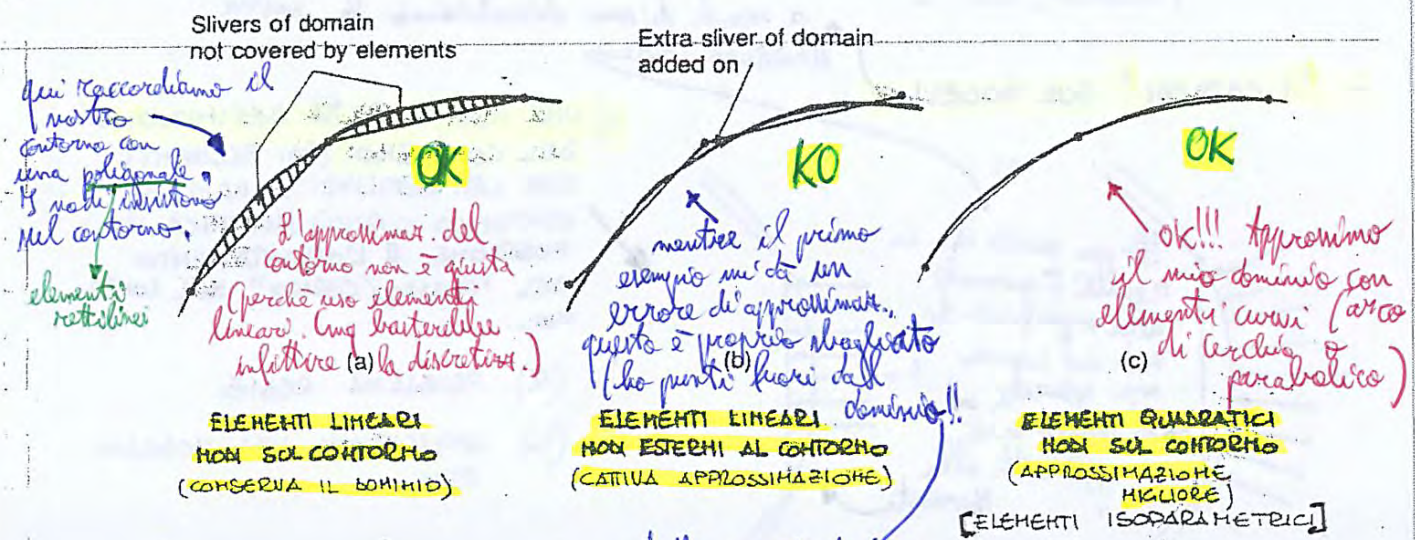 Slivers of domain
not covered by elements
qui raccordiamo il
nostro
contorno con
una poligonale.
I nodi insistono
sul contorno.
elementi
rettilinei
OK
L'approssimaz. del
contorno non è giusta
(perché uso elementi
lineari. Cmq basterebbe
infittire la discretizz.)
(a)
ELEMENTI LINEARI
NODI SUL CONTORNO
(CONSERVA IL DOMINIO)
Extra sliver of domain
added on
KO
mentre il primo
esempio mi dà un
errore di approssimaz.,
questo è proprio sbagliato
(ho punti fuori dal
dominio!!
(b)
ELEMENTI LINEARI
NODI ESTERNI AL CONTORNO
(CATTIVA APPROSSIMAZIONE)
OK
ok!!! Approssimo
il mio dominio con
elementi curvi (arco
di cerchio o
parabolico)
(c)
ELEMENTI QUADRATICI
NODI SUL CONTORNO
(APPROSSIMAZIONE
MIGLIORE)
[ELEMENTI ISOPARAMETRICI]